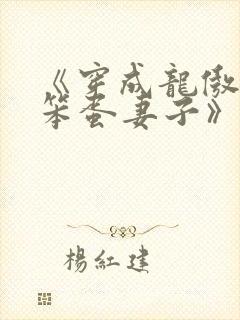 《穿成龍傲
笨蛋妻子》
楊紅建